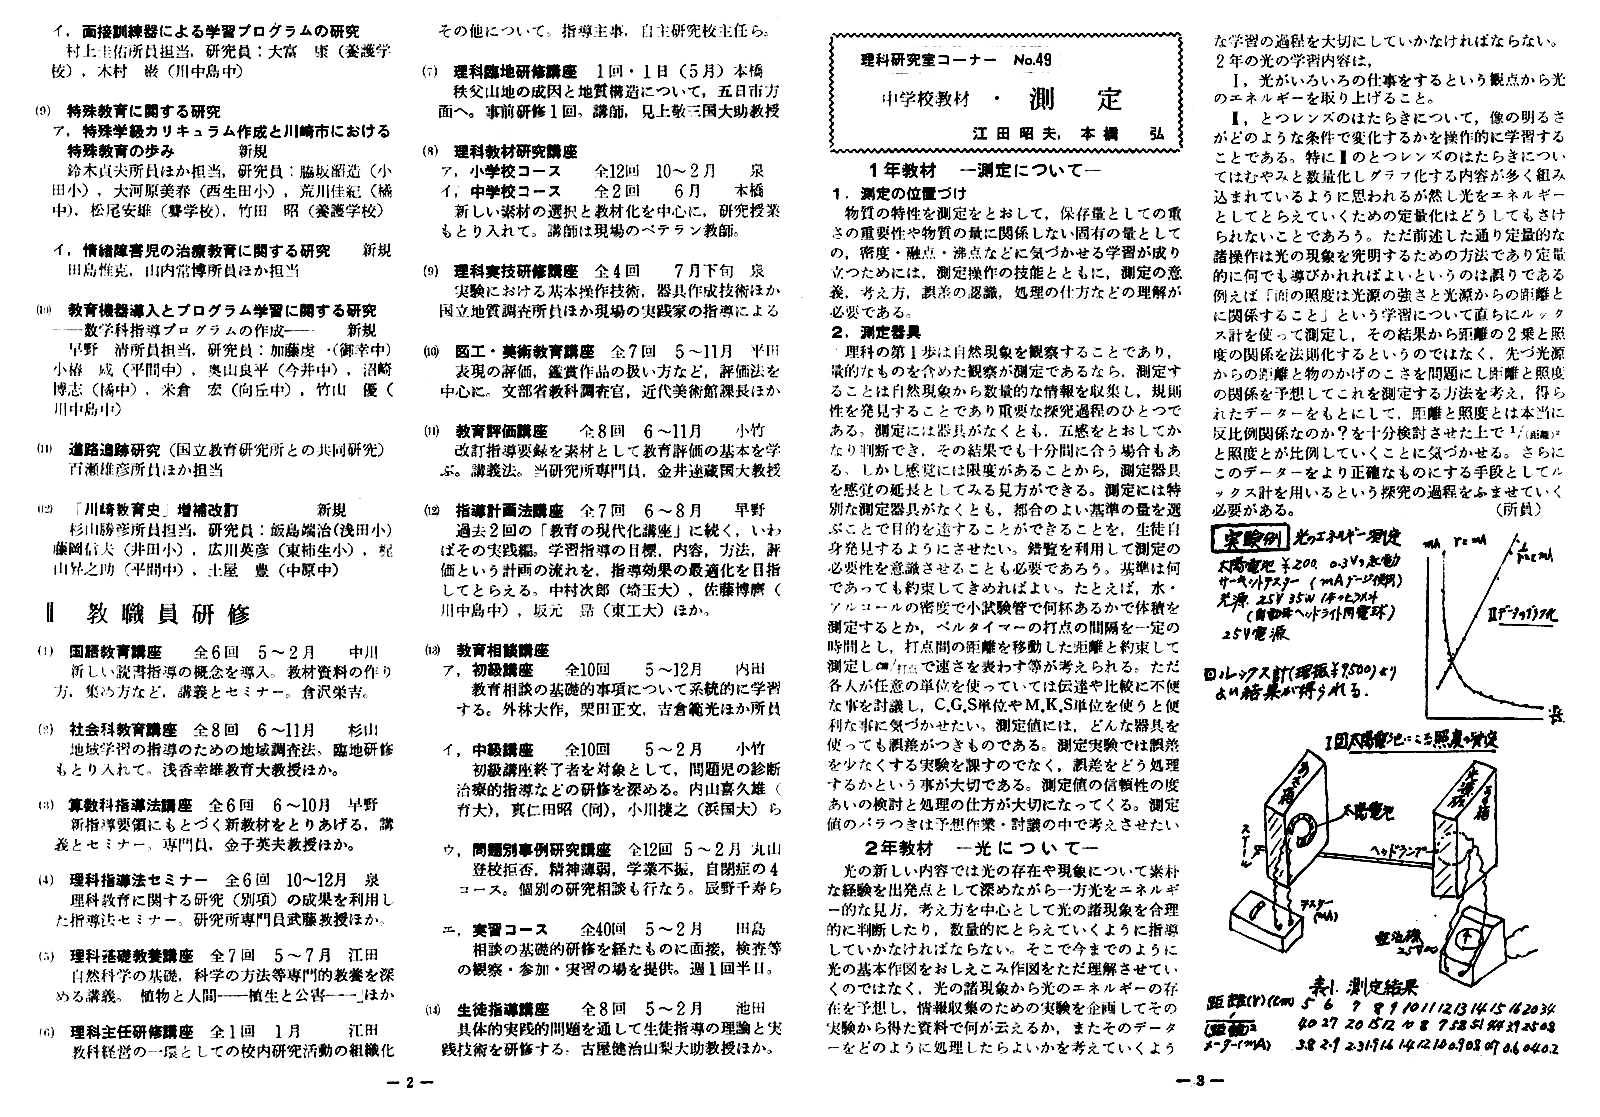 イ，面接訓練器による学習プログラムの研究
村上圭佑所員担当，研究員：大富　康（養護学
校），木村　巌（川中島中）
(9)　特殊教育に関する研究
ア，特殊学級カリキュラム作成と川崎市における
特殊教育の歩み　　　　新規
鈴木貞夫所員ほか担当，研究員：脇坂韶造（小
田小），大河原美春（西生田小），荒川佳紀（橘
中），松尾安雄（聾学校），竹田　昭（養護学校）
イ，情緒障害児の治療教育に関する研究　　新規
田島惟克，山内常博所員ほか担当
(10)　教育機器導入とプログラム学習に関する研究
――数学科指導プログラムの作成――　　新規
早野　清所員担当，研究員：加藤虔一（御幸中）
小椿　威（平間中），奥山良平（今井中），沼崎
博志（橘中），米倉　宏（向丘中），竹山　優（
川中島中）
(11)　進路追跡研究（国立教育研究所との共同研究）
百瀬雄彦所員ほか担当
(12)　「川崎教育史」増補改訂　　　　新規
杉山勝彦所員担当，研究員：飯島端治（浅田小）
藤岡信夫（井田小），広川英彦（東柿生小），
山昇之助（平間中），土屋　豊（中原中）
Ⅱ　教職員研修
(1)　国語教育講座　全6回　5～2月　中川
新しい読書指導の概念を導入。教材資料の作り
方，集め方など，講義とセミナー。倉沢栄吉。
(2)　社会科教育講座　全8回　6～11月　杉山
地域学習の指導のための地域調査法，臨地研修
もとり入れて。浅香幸雄教育大教授ほか。
(3)　算数科指導法講座　全6回　6～10月　早野
新指導要領にもとづく新教材をとりあげる，講
義とセミナー。専門員，金子英夫教授ほか。
(4)　理科指導法セミナー　全6回　10～12月　泉
理科教育に関する研究（別項）の成果を利用し
た指導法セミナー。研究所専門員武藤教授ほか。
(5)　理科基礎教養講座　全7回　5～7月　江田
自然科学の基礎，科学の方法等専門的教養を深
める講義。植物と人間――植生と公害――」ほか
(6)　理科主任研修講座　全1回　1月　　江田
教科経営の一環としての校内研究活動の組織化
その他について。指導主事，自主研究校主任ら。
(7)　理科臨地研修講座　1回・1日（5月）本橋
秩父山地の成因と地質構造について，五日市方
面へ。事前研修1回。講師，見上敬三国大助教授
(8)　理科教材研究講座
ア，小学校コース　　全12回　10～2月　　泉
イ，中学校コース　　全2回　　6月　　本橋
新しい素材の選択と教材化を中心に，研究授業
もとり入れて。講師は現場のベテラン教師。
(9)　理科実技研修講座　全4回　　7月下旬　泉
実験における基本操作技術，器具作成技術ほか
国立地質調査所員ほか現場の実践家の指導による
(10)　図工・美術教育講座　全7回　5～11月　平田
表現の評価，鑑賞作品の扱い方など，評価法を
中心に。文部省教科調査官，近代美術館課長ほか
(11)　教育評価講座　全8回　6～11月　　小竹
改訂指導要録を素材として教育評価の基本を学
ぶ。講義法。当研究所専門員，金井達蔵国大教授
(12)　指導計画法講座　全7回　6～8月　　早野
過去2回の「教育の現代化講座」に続く，いわ
ばその実践編。学習指導の目標，内容，方法，評
価という計画の流れを，指導効果の最適化を目指
してとらえる。中村次郎（埼玉大），佐藤博麿（
川中島中），坂元　昻（東工大）ほか。
(13)　教育相談講座
ア，初級講座　　全10回　　5～12月　　内田
教育相談の基礎的事項について系統的に学習
する。外林大作，栗田正文，古倉範光ほか所員
イ，中級講座　　全10回　　5～2月　　小竹
初級講座終了者を対象として，問題児の診断
治療的指導などの研修を深める。内山喜久雄（
育大），真仁田昭（同），小川捷之（浜国大）ら
ウ，問題別事例研究講座　全12回　5～2月　丸山
登校拒否，精神薄弱，学業不振，自閉症の4
コース。個別の研究相談も行なう。辰野千寿ら
エ，実習コース　　全40回　5～2月　　田島
相談の基礎的研修を経たものに面接，検査等
の観察・参加・実習の場を提供。週1回半日。
(14)　生徒指導講座　　全8回　5～2月　　池田
具体的実践的問題を通して生徒指導の理論と実
践技術を研修する。古屋健治山梨大助教授ほか。
―2―
理科研究室コーナー　No.49
中学校教材　・　測　定
江田昭夫，本橋　弘
1年教材　―測定について―
1．測定の位置づけ
物質の特性を測定をとおして，保存量としての重
さの重要性や物質の量に関係しない固有の量として
の，密度・融点・沸点などに気づかせる学習が成り
立つためには，測定操作の技能とともに，測定の意
義，考え方，誤差の認識，処理の仕方などの理解が
必要である。
2．測定器具
理科の第1歩は自然現象を観察することであり，
量的なものを含めた観察が測定であるなら，測定す
ることは自然現象から数量的な情報を収集し，規則
性を発見することであり重要な探究過程のひとつで
ある。測定には器具がなくとも，五感をとおしてか
なり判断でき，その結果でも十分間に合う場合もあ
る。しかし感覚には限度があることから，測定器具
を感覚の延長としてみる見方ができる。測定には特
別な測定器具がなくとも，都合のよい基準の量を選
ぶことで目的を達することができることを，生徒自
身発見するようにさせたい。錯覚を利用して測定の
必要性を意識させることも必要であろう。基準は何
であっても約束してきめればよい。たとえば，水・
アルコールの密度で小試験管で何杯あるかで体積を
測定するとか，ベルタイマーの打点の間隔を一定の
時間とし，打点間の距離を移動した距離と約束して
測定しcm/打点で速さを表わす等が考えられる。ただ
各人が任意の単位を使っていては伝達や比較に不便
な事を討議し，C,G,S単位やM,K,S単位を使うと便
利な事に気づかせたい。測定値には，どんな器具を
使っても誤差がつきものである。測定実験では誤差
を少なくする実験を課すのでなく，誤差をどう処理
するかという事が大切である。測定値の信頼性の度
あいの検討と処理の仕方が大切になってくる。測定
値のバラつきは予想作業・討議の中で考えさせたい
2年教材　―光について―
光の新しい内容では光の存在や現象について素朴
な経験を出発点として深めながら一方光をエネルギ
ー的な見方，考え方を中心として光の諸現象を合理
的に判断したり，数量的にとらえていくように指導
していかなければならない。そこで今までのように
光の基本作図をおしえこみ作図をただ理解させてい
くのではなく，光の諸現象から光のエネルギーの存
在を予想し，情報収集のための実験を企画してその
実験から得た資料で何が云えるか，またそのデータ
ーをどのように処理したらよいかを考えていくよう
な学習の過程を大切にしていかなければならない。
2年の光の学習内容は，
Ⅰ，光がいろいろの仕事をするという観点から光
のエネルギーを取り上げること。
Ⅱ，とつレンズのはたらきについて，像の明るさ
がどのような条件で変化するかを操作的に学習する
ことである。特にⅡのとつレンズのはたらきについ
てはむやみと数量化しグラフ化する内容が多く組み
込まれているように思われるが然し光をエネルギー
としてとらえていくための定量化はどうしてもさけ
られないことであろう。ただ前述した通り定量的な
諸操作は光の現象を究明するための方法であり定量
的に何でも導びかれればよいというのは誤りである
例えば「面の照度は光源の強さと光源からの距離と
に関係すること」という学習について直ちにルック
ス計を使って測定し，その結果から距離の2乗と照
度の関係を法則化するというのではなく，先づ光源
からの距離と物のかげのこさを問題にし距離と照度
の関係を予想してこれを測定する方法を考え，得ら
れたデーターをもとにして，距離と照度とは本当に
反比例関係なのか？を十分検討させた上で1/(距離)²
と照度とが比例していくことに気づかせる。さらに
このデーターをより正確なものにする手段としてル
ックス計を用いるという探究の過程をふませていく
必要がある。　　　　　　　　　　　　　（所員）
実験例　光のエネルギー測定
太陽電池 ¥200　0.3V
サーキットテスター（mAゲージ使用）
光源　25V 35W
（自動車ヘッドライト用電球）
25V電源
回ルックス計（理振¥9,500）より
よい結果が得られる。
mA　r=mA
Ⅱデータのグラフ化
Ⅰ図太陽電池による照度の測定
太陽電池
スケール
ヘッドランプ
テスター
(mA)
25V
表1．測定結果
距離(r)(cm) 5 6 7 8 9 10 11 12 13 14 15 16 20 34
メーター(mA)
―3―